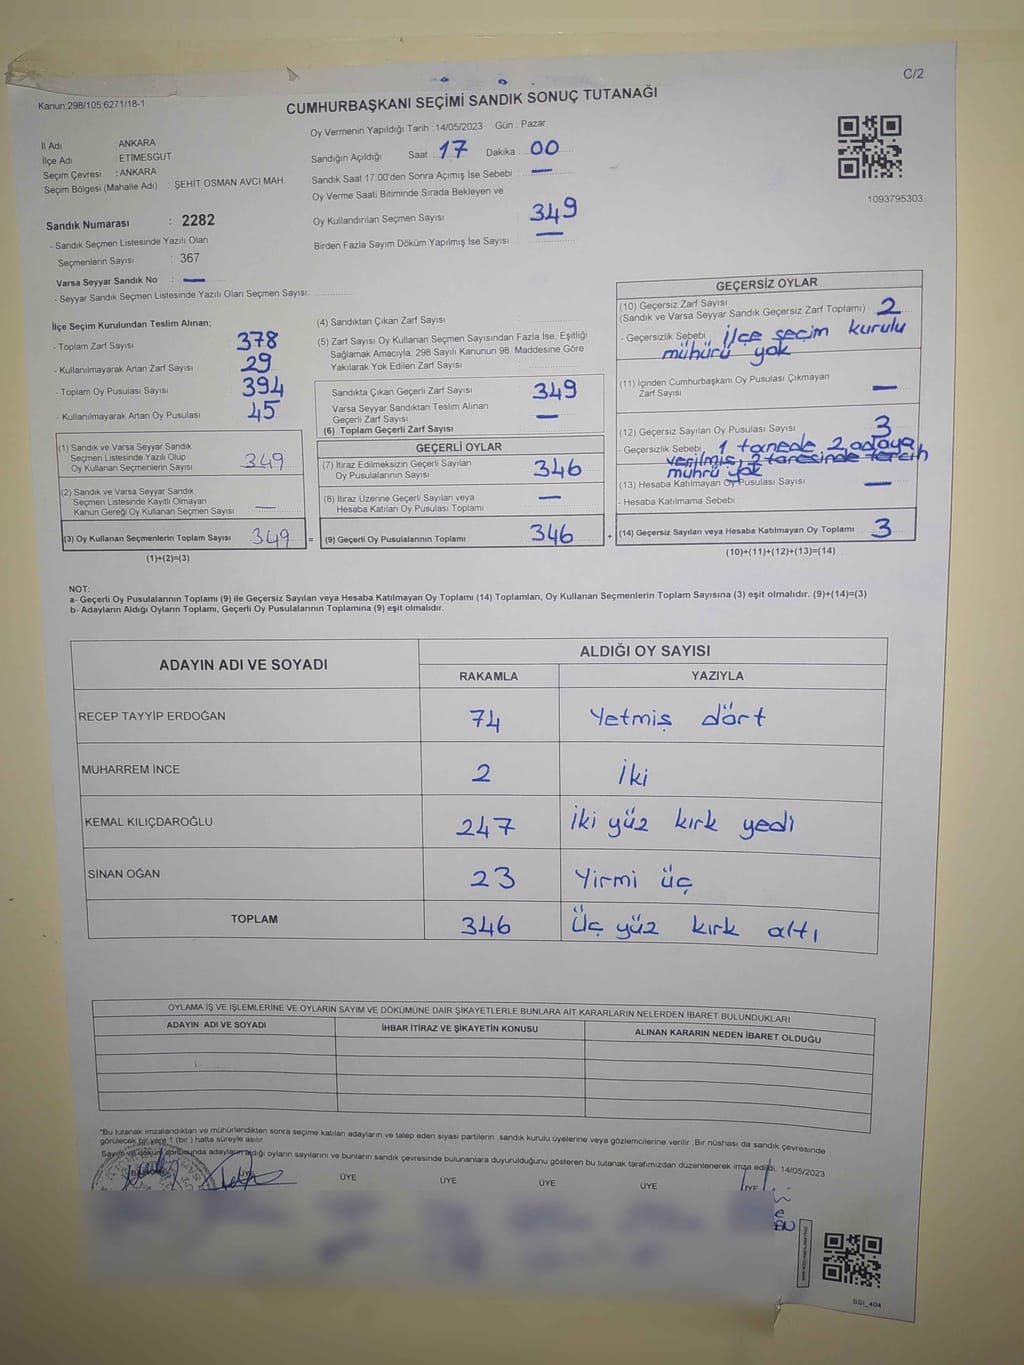 C/2
Kanun;298/105;6271/18-1
CUMHURBAŞKANI SEÇİMİ SANDIK SONUÇ TUTANAĞI
Oy Vermenin Yapıldığı Tarih : 14/05/2023 Gün : Pazar
İl Adı ANKARA
İlçe Adı : ETİMESGUT
Seçim Çevresi : ANKARA
Seçim Bölgesi (Mahalle Adı) : ŞEHİT OSMAN AVCI MAH.
Sandığın Açıldığı Saat : 17 Dakika : 00
Sandık Saat 17:00'den Sonra Açımış İse Sebebi : —
Oy Verme Saati Bitiminde Sırada Bekleyen ve
Oy Kullandırılan Seçmen Sayısı 349
Birden Fazla Sayım Döküm Yapılmış İse Sayısı —
1093795303
Sandık Numarası : 2282
- Sandık Seçmen Listesinde Yazılı Olan
Seçmenlerin Sayısı : 367
Varsa Seyyar Sandık No : —
- Seyyar Sandık Seçmen Listesinde Yazılı Olan Seçmen Sayısı:
İlçe Seçim Kurulundan Teslim Alınan;
- Toplam Zarf Sayısı 378
- Kullanılmayarak Artan Zarf Sayısı 29
- Toplam Oy Pusulası Sayısı 394
- Kullanılmayarak Artan Oy Pusulası 45
(1) Sandık ve Varsa Seyyar Sandık
Seçmen Listesinde Yazılı Olup
Oy Kullanan Seçmenlerin Sayısı 349
(2) Sandık ve Varsa Seyyar Sandık
Seçmen Listesinde Kayıtlı Olmayan
Kanun Gereği Oy Kullanan Seçmen Sayısı —
(3) Oy Kullanan Seçmenlerin Toplam Sayısı 349 =
(1)+(2)=(3)
(4) Sandıktan Çıkan Zarf Sayısı
(5) Zarf Sayısı Oy Kullanan Seçmen Sayısından Fazla İse, Eşitliği
Sağlamak Amacıyla, 298 Sayılı Kanunun 98. Maddesine Göre
Yakılarak Yok Edilen Zarf Sayısı
Sandıkta Çıkan Geçerli Zarf Sayısı 349
Varsa Seyyar Sandıktan Teslim Alınan
Geçerli Zarf Sayısı —
(6) Toplam Geçerli Zarf Sayısı
GEÇERLİ OYLAR
(7) İtiraz Edilmeksizin Geçerli Sayılan
Oy Pusulalarının Sayısı 346
(8) İtiraz Üzerine Geçerli Sayılan veya
Hesaba Katılan Oy Pusulası Toplamı —
(9) Geçerli Oy Pusulalarının Toplamı 346 +
GEÇERSİZ OYLAR
(10) Geçersiz Zarf Sayısı
(Sandık ve Varsa Seyyar Sandık Geçersiz Zarf Toplamı) 2
- Geçersizlik Sebebi İlçe seçim kurulu
mühürü yok
(11) İçinden Cumhurbaşkanı Oy Pusulası Çıkmayan
Zarf Sayısı —
(12) Geçersiz Sayılan Oy Pusulası Sayısı 3
- Geçersizlik Sebebi 1 tanede 2 adaya
verilmiş, 2 tanesinde tercih
mührü yok
(13) Hesaba Katılmayan Oy Pusulası Sayısı —
- Hesaba Katılmama Sebebi
(14) Geçersiz Sayılan veya Hesaba Katılmayan Oy Toplamı 3
(10)+(11)+(12)+(13)=(14)
NOT:
a- Geçerli Oy Pusulalarının Toplamı (9) ile Geçersiz Sayılan veya Hesaba Katılmayan Oy Toplamı (14) Toplamları, Oy Kullanan Seçmenlerin Toplam Sayısına (3) eşit olmalıdır. (9)+(14)=(3)
b- Adayların Aldığı Oyların Toplamı, Geçerli Oy Pusulalarının Toplamına (9) eşit olmalıdır.
ADAYIN ADI VE SOYADI ALDIĞI OY SAYISI
RAKAMLA YAZIYLA
RECEP TAYYİP ERDOĞAN 74 Yetmiş dört
MUHARREM İNCE 2 İki
KEMAL KILIÇDAROĞLU 247 İki yüz kırk yedi
SİNAN OĞAN 23 Yirmi üç
TOPLAM 346 Üç yüz kırk altı
OYLAMA İŞ VE İŞLEMLERİNE VE OYLARIN SAYIM VE DÖKÜMÜNE DAİR ŞİKAYETLERLE BUNLARA AİT KARARLARIN NELERDEN İBARET BULUNDUKLARI
ADAYIN ADI VE SOYADI İHBAR İTİRAZ VE ŞİKAYETİN KONUSU ALINAN KARARIN NEDEN İBARET OLDUĞU
*Bu tutanak imzalandıktan ve mühürlendikten sonra seçime katılan adayların ve talep eden siyasi partilerin sandık kurulu üyelerine veya gözlemcilerine verilir. Bir nüshası da sandık çevresinde
görülecek bir yere 1 (bir) hafta süreyle asılır.
Sayım ve döküm sonucunda adayların aldığı oyların sayılarını ve bunların sandık çevresinde bulunanlara duyurulduğunu gösteren bu tutanak tarafımızdan düzenlenerek imza edildi. 14/05/2023
ÜYE ÜYE ÜYE ÜYE ÜYE
SSI_404